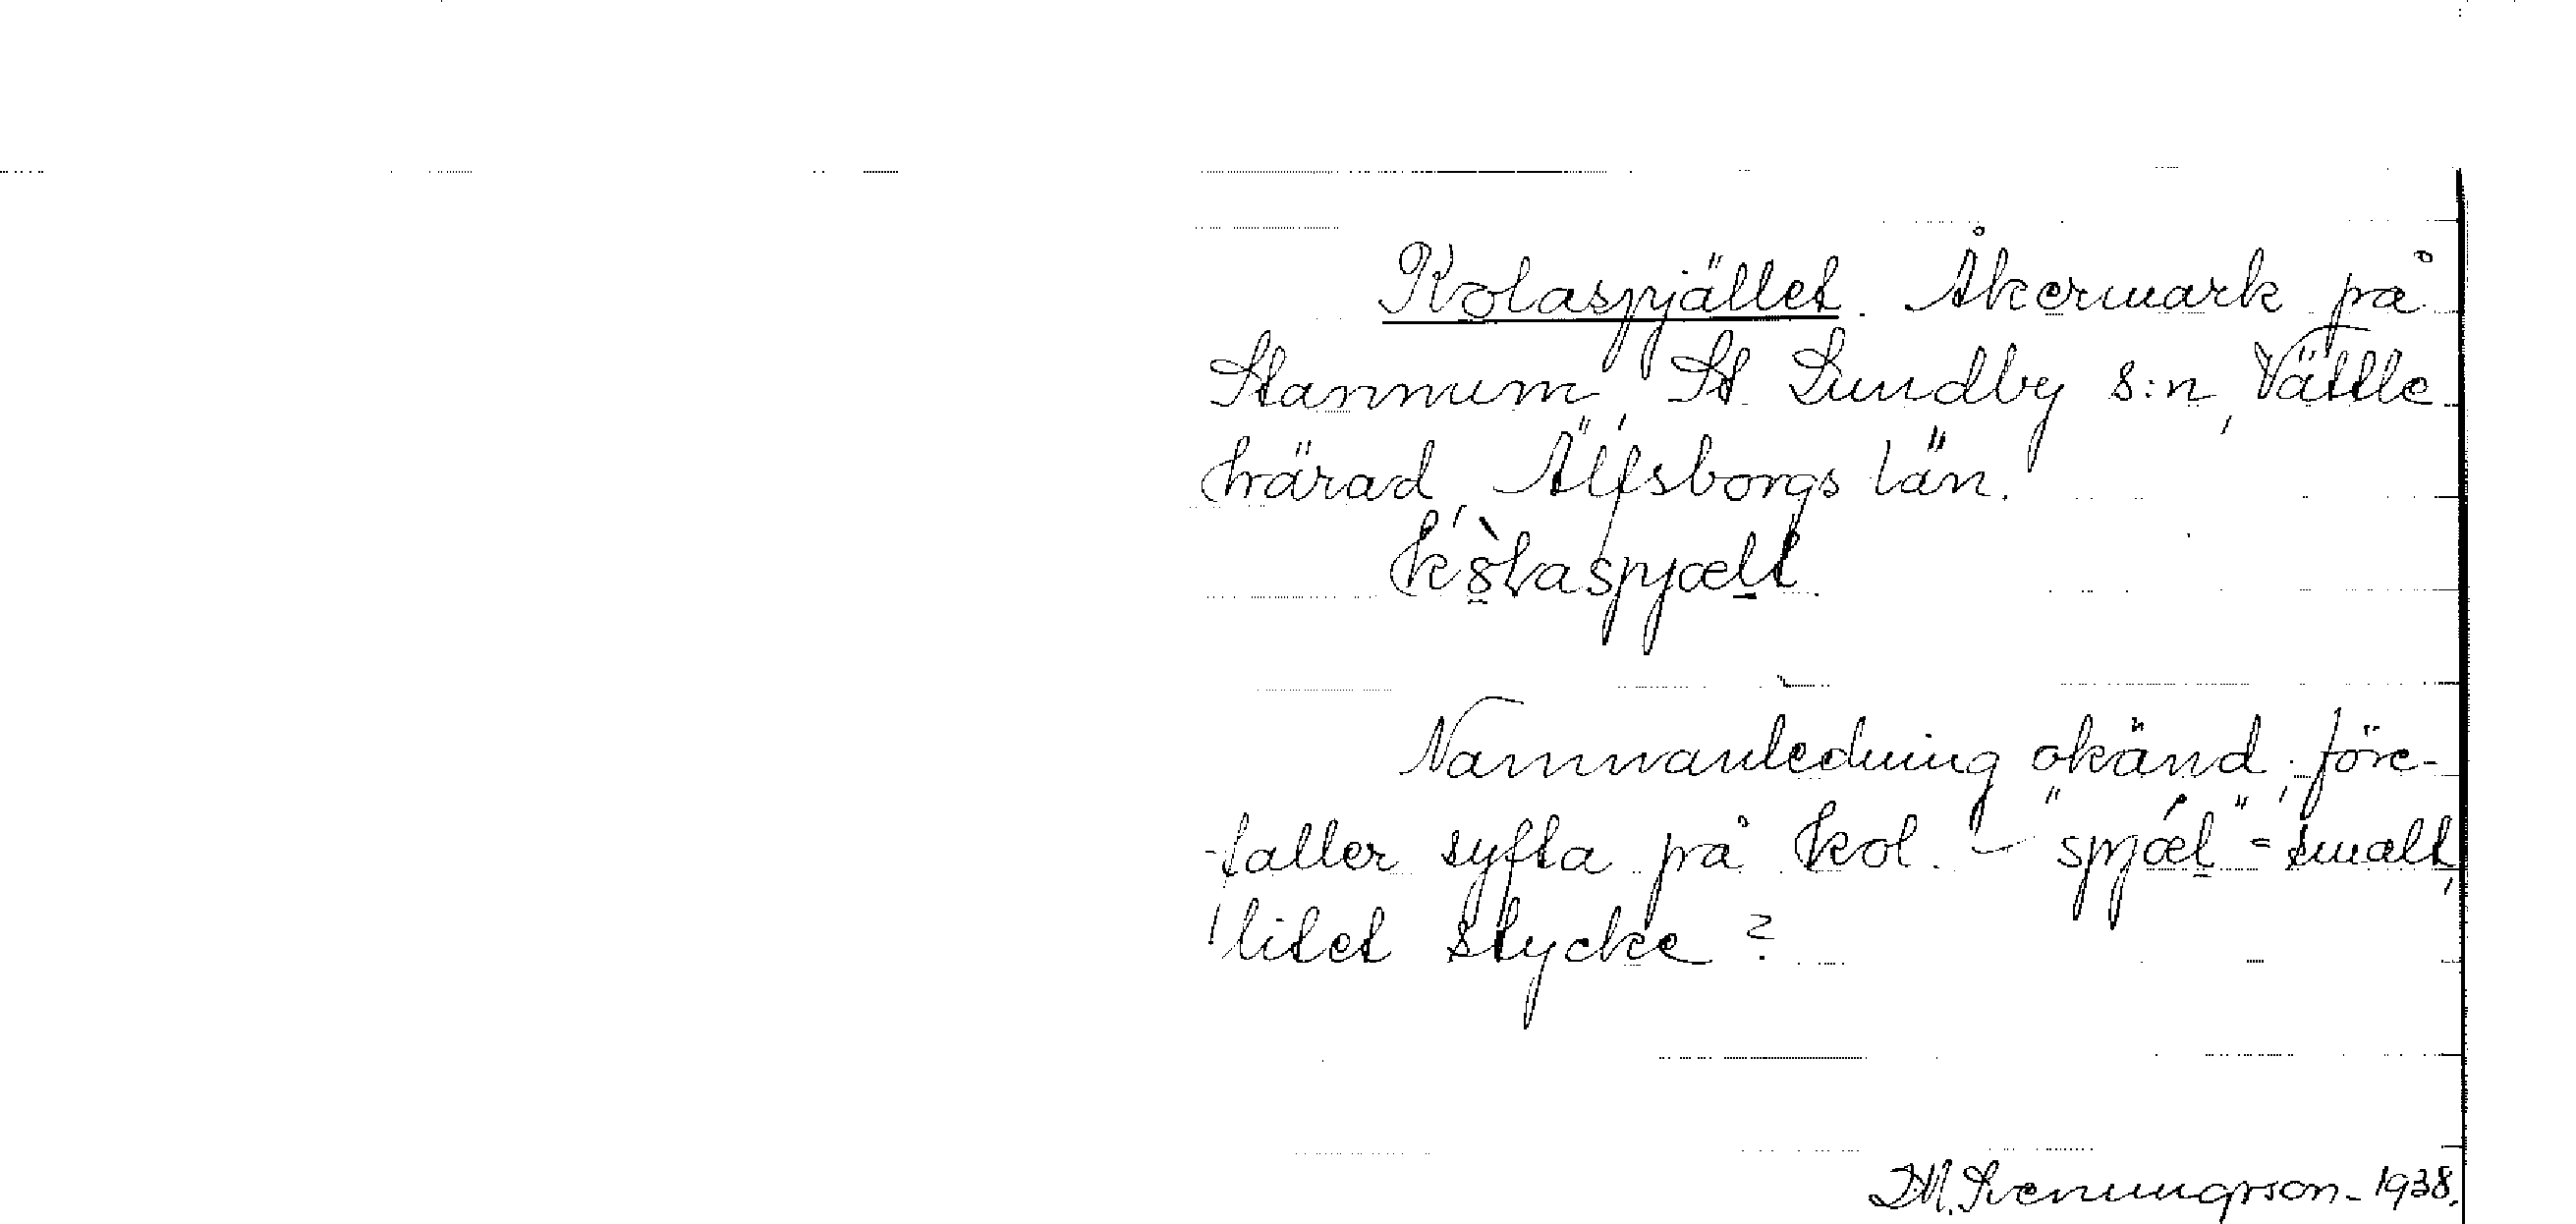 Kolaspjället. Åkermark på
Stannum, St. Lundby s:n, Vättle
härad, Älfsborgs län.
Namnanledning okänd; före-
faller syfta på kol. – "spjæl" = smalt,
litet stycke?
Svenungsson - 1938.